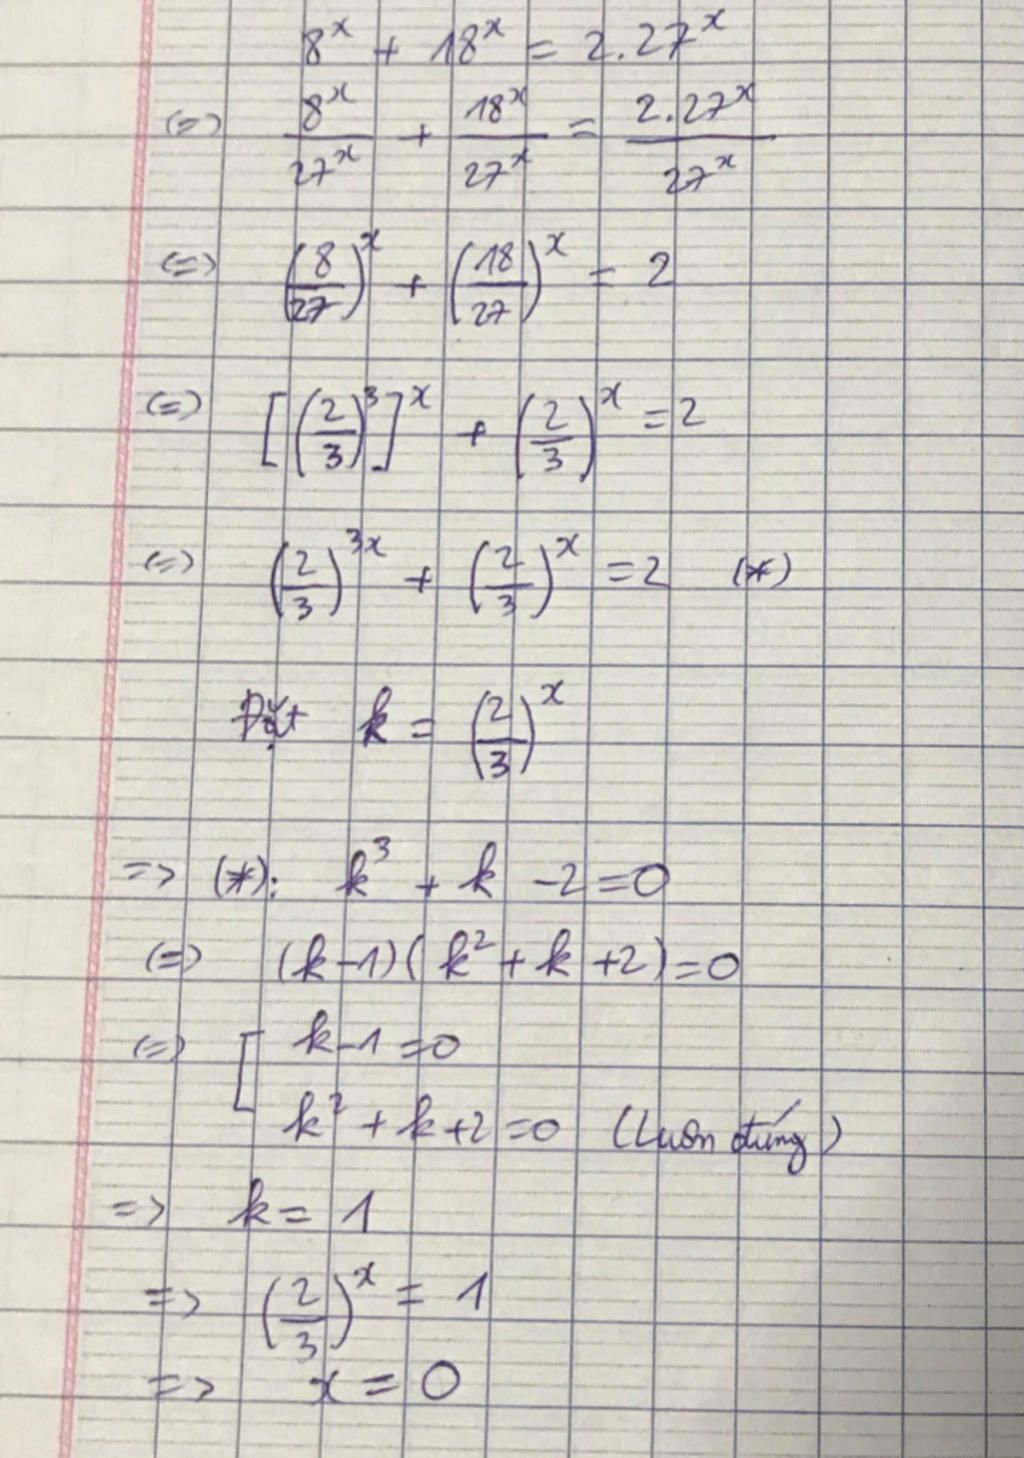 8^x + 18^x = 2.27^x
(=) 8^x/27^x + 18^x/27^x = 2.27^x/27^x
(=) (8/27)^x + (18/27)^x = 2
(=) [(2/3)^3]^x + (2/3)^x = 2
(=) (2/3)^3x + (2/3)^x = 2 (*)
Đặt k = (2/3)^x
=> (*): k^3 + k - 2 = 0
(=) (k-1)(k^2 + k + 2) = 0
(=) [ k-1 = 0
k^2 + k + 2 = 0 (Luôn đúng)
=> k = 1
=> (2/3)^x = 1
=> x = 0